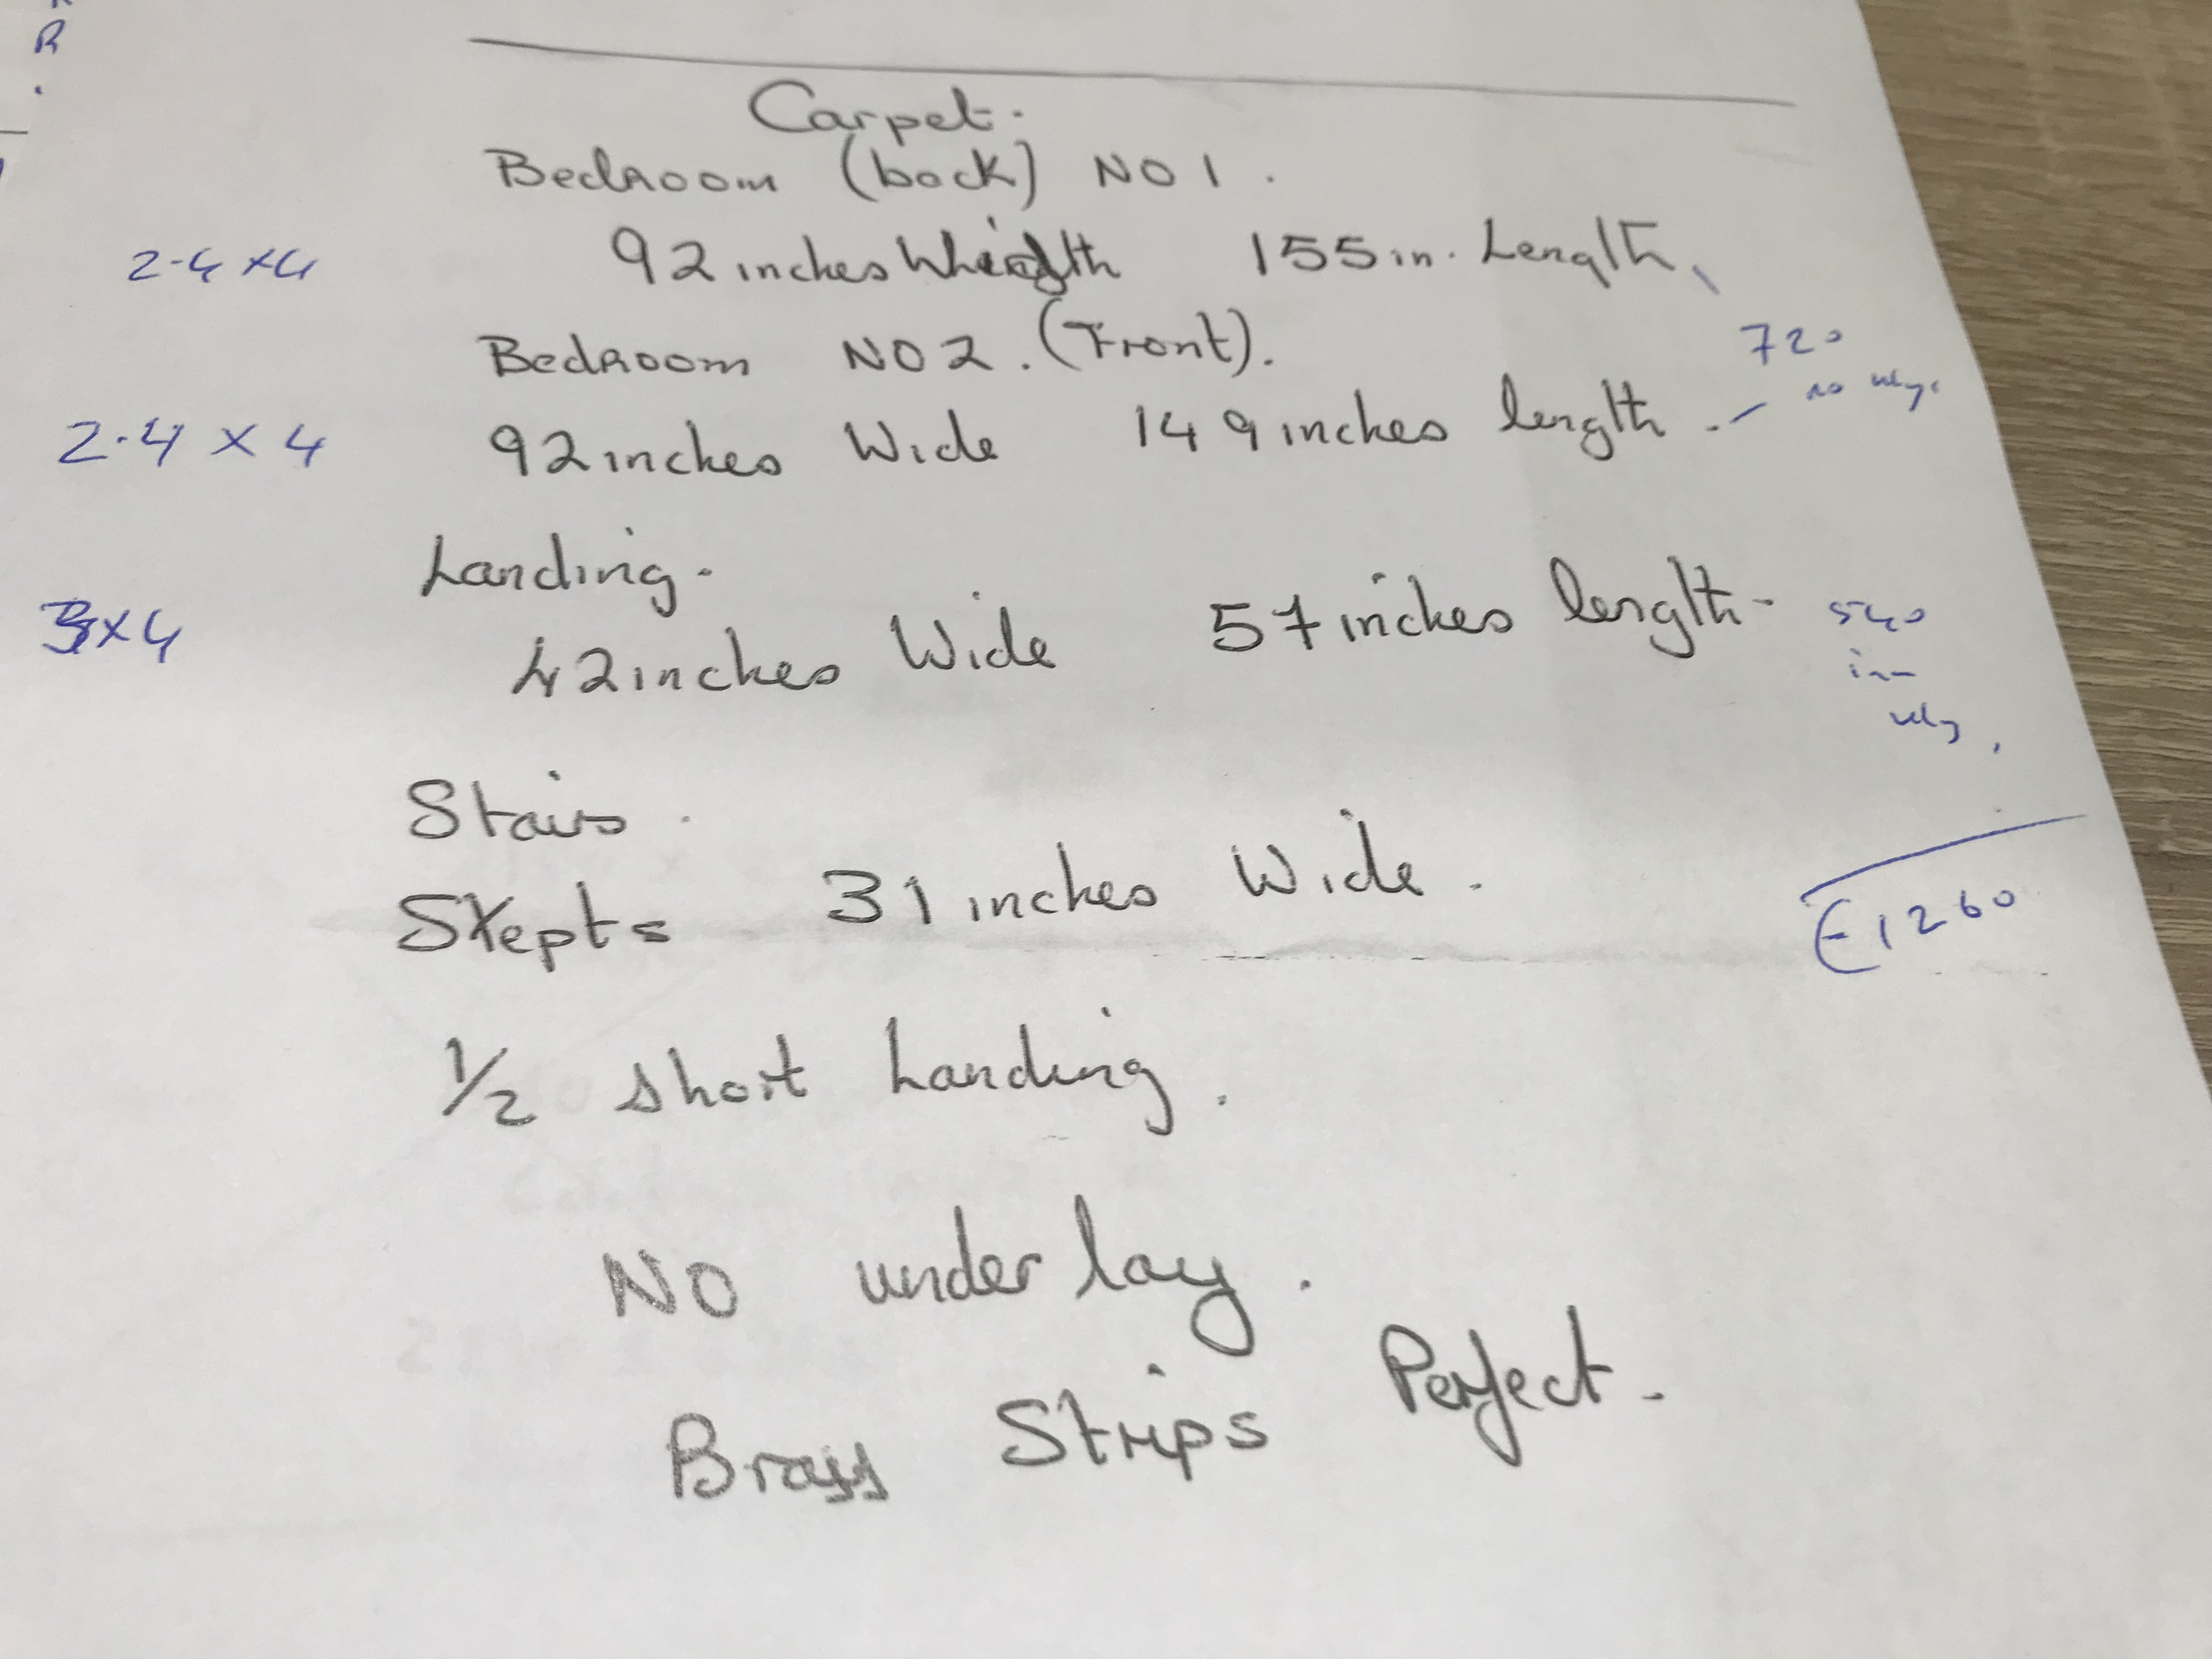 R
Carpet.
Bedroom (back) NO 1.
2.4 x 4 92 inches Whidth 155 in. Length
Bedroom NO 2. (Front).
720
no
2.4 x 4 92 inches Wide 149 inches length.
Landing.
3x4 42 inches Wide 57 inches length -
540
Stairs.
Stept= 31 inches Wide.
£1260
1/2 short Landing.
NO underlay.
Brass Strips Perfect.